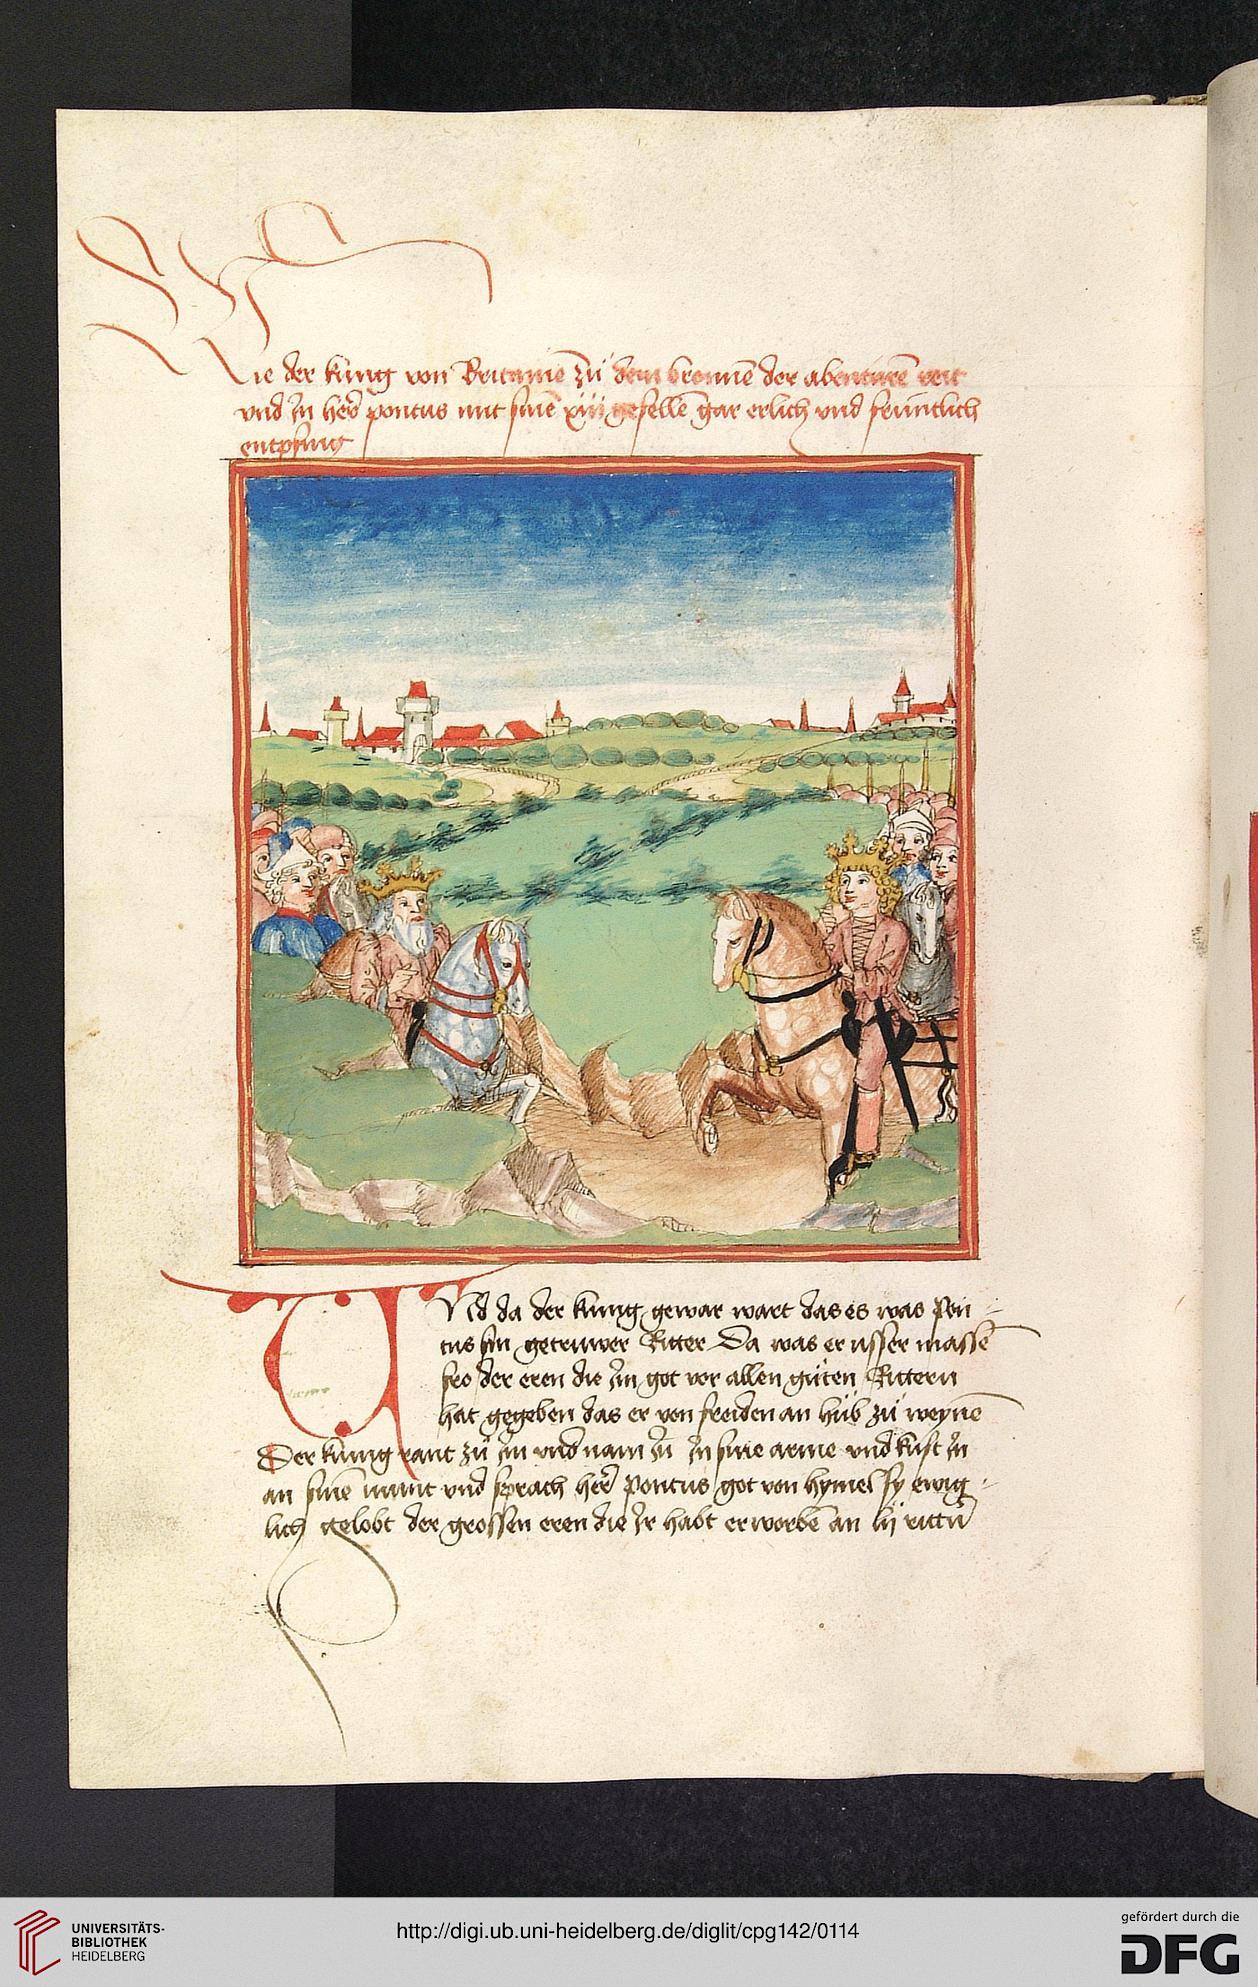 Wie der kúnig von Britanie̅ zú dem bronne̅ der abentúre̅ reit
vnd Jn her̅ pontus mit sine̅ xiii geselle̅ gar erlich vnd frúntlich
entpfing
Vnd da der kúnig gewar wart das es was pon
tus sin getruwer Ritter Da was er vsser masse̅
fro der eren die Jm got vor allen gúten Rittern
hat gegeben das er von freiden an húb zú weyne̅
Der kúnig rant zú Jm vnd nam Jn Jn sine arme vnd kust Jn
an sine̅ munt vnd sprach her̅ pontus got von hymel sy ewig
lich gelobt der grossen eren die Jr habt erworbe̅ an lij
UNIVERSITÄTS-
BIBLIOTHEK
HEIDELBERG
http://digi.ub.uni-heidelberg.de/diglit/cpg142/0114
gefördert durch die
DFG